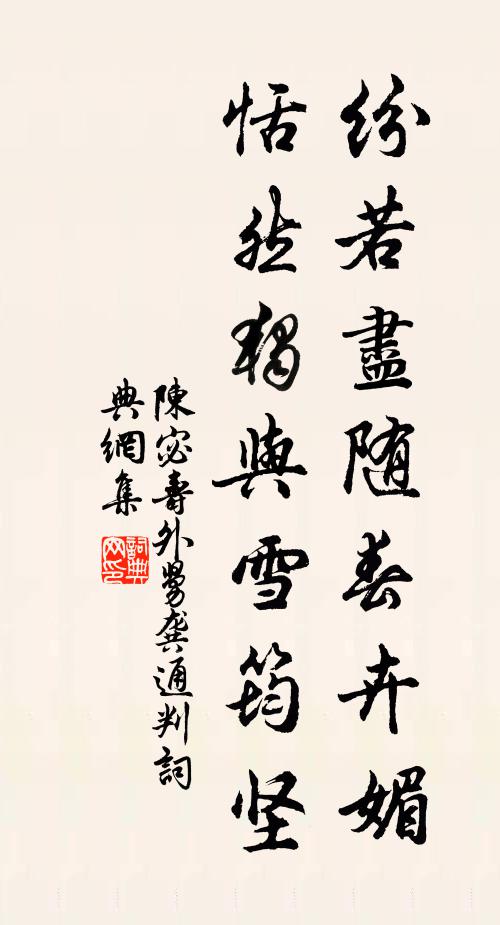 紛若盡随春卉媚
恬然獨與雪筠坚
陳宓壽外舅龔通判詞
典網集
詞典网印